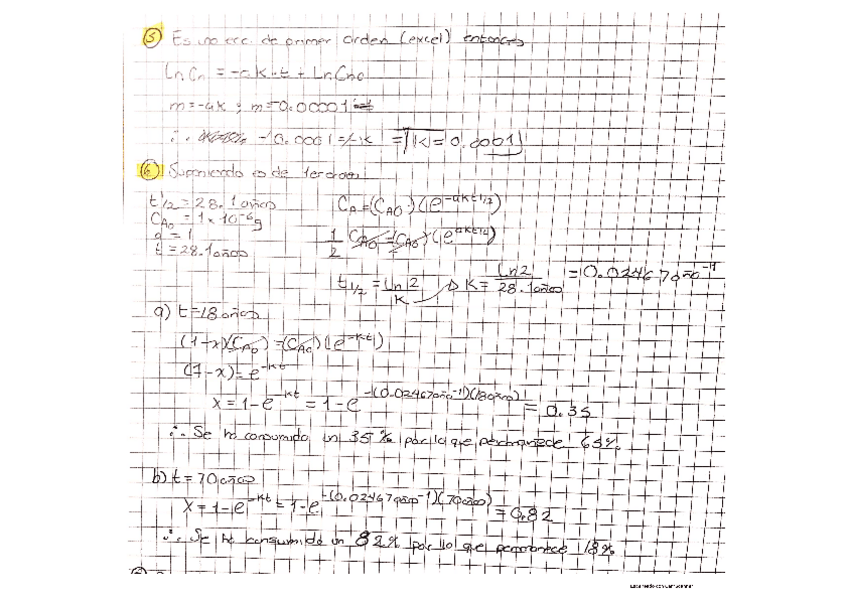 5 Es una rxc. de primer orden (excel) entonces
Ln Cn = -ak·t + Ln Cn0
m = -ak ; m = -0.00001
∴ -0.0001 = -k = |K| = 0.0001
6 Suponiendo es de 1er orden
t 1/2 = 28.1 años CA = (CA0)(e^-akt1/2)
CA0 = 1x10^-6 g
a = 1 1/2 CA0 = (CA0)(e^akt1/2)
t = 28.1 años
t1/2 = Ln 2 / K → K = Ln 2 / 28.1 años = 0.02467 año^-1
a) t = 18 años
(1-x)(CA0) = (CA0)(e^-kt)
(1-x) = e^-kt
X = 1-e^-kt = 1-e^-(0.02467 año^-1)(18 años) = 0.35
∴ Se ha consumido un 35% por lo que permanece 65%
b) t = 70 años
X = 1-e^-kt = 1-e^-(0.02467 año^-1)(70 años) = 0.82
∴ Se ha consumido un 82% por lo que permanece 18%
Escaneado con CamScanner